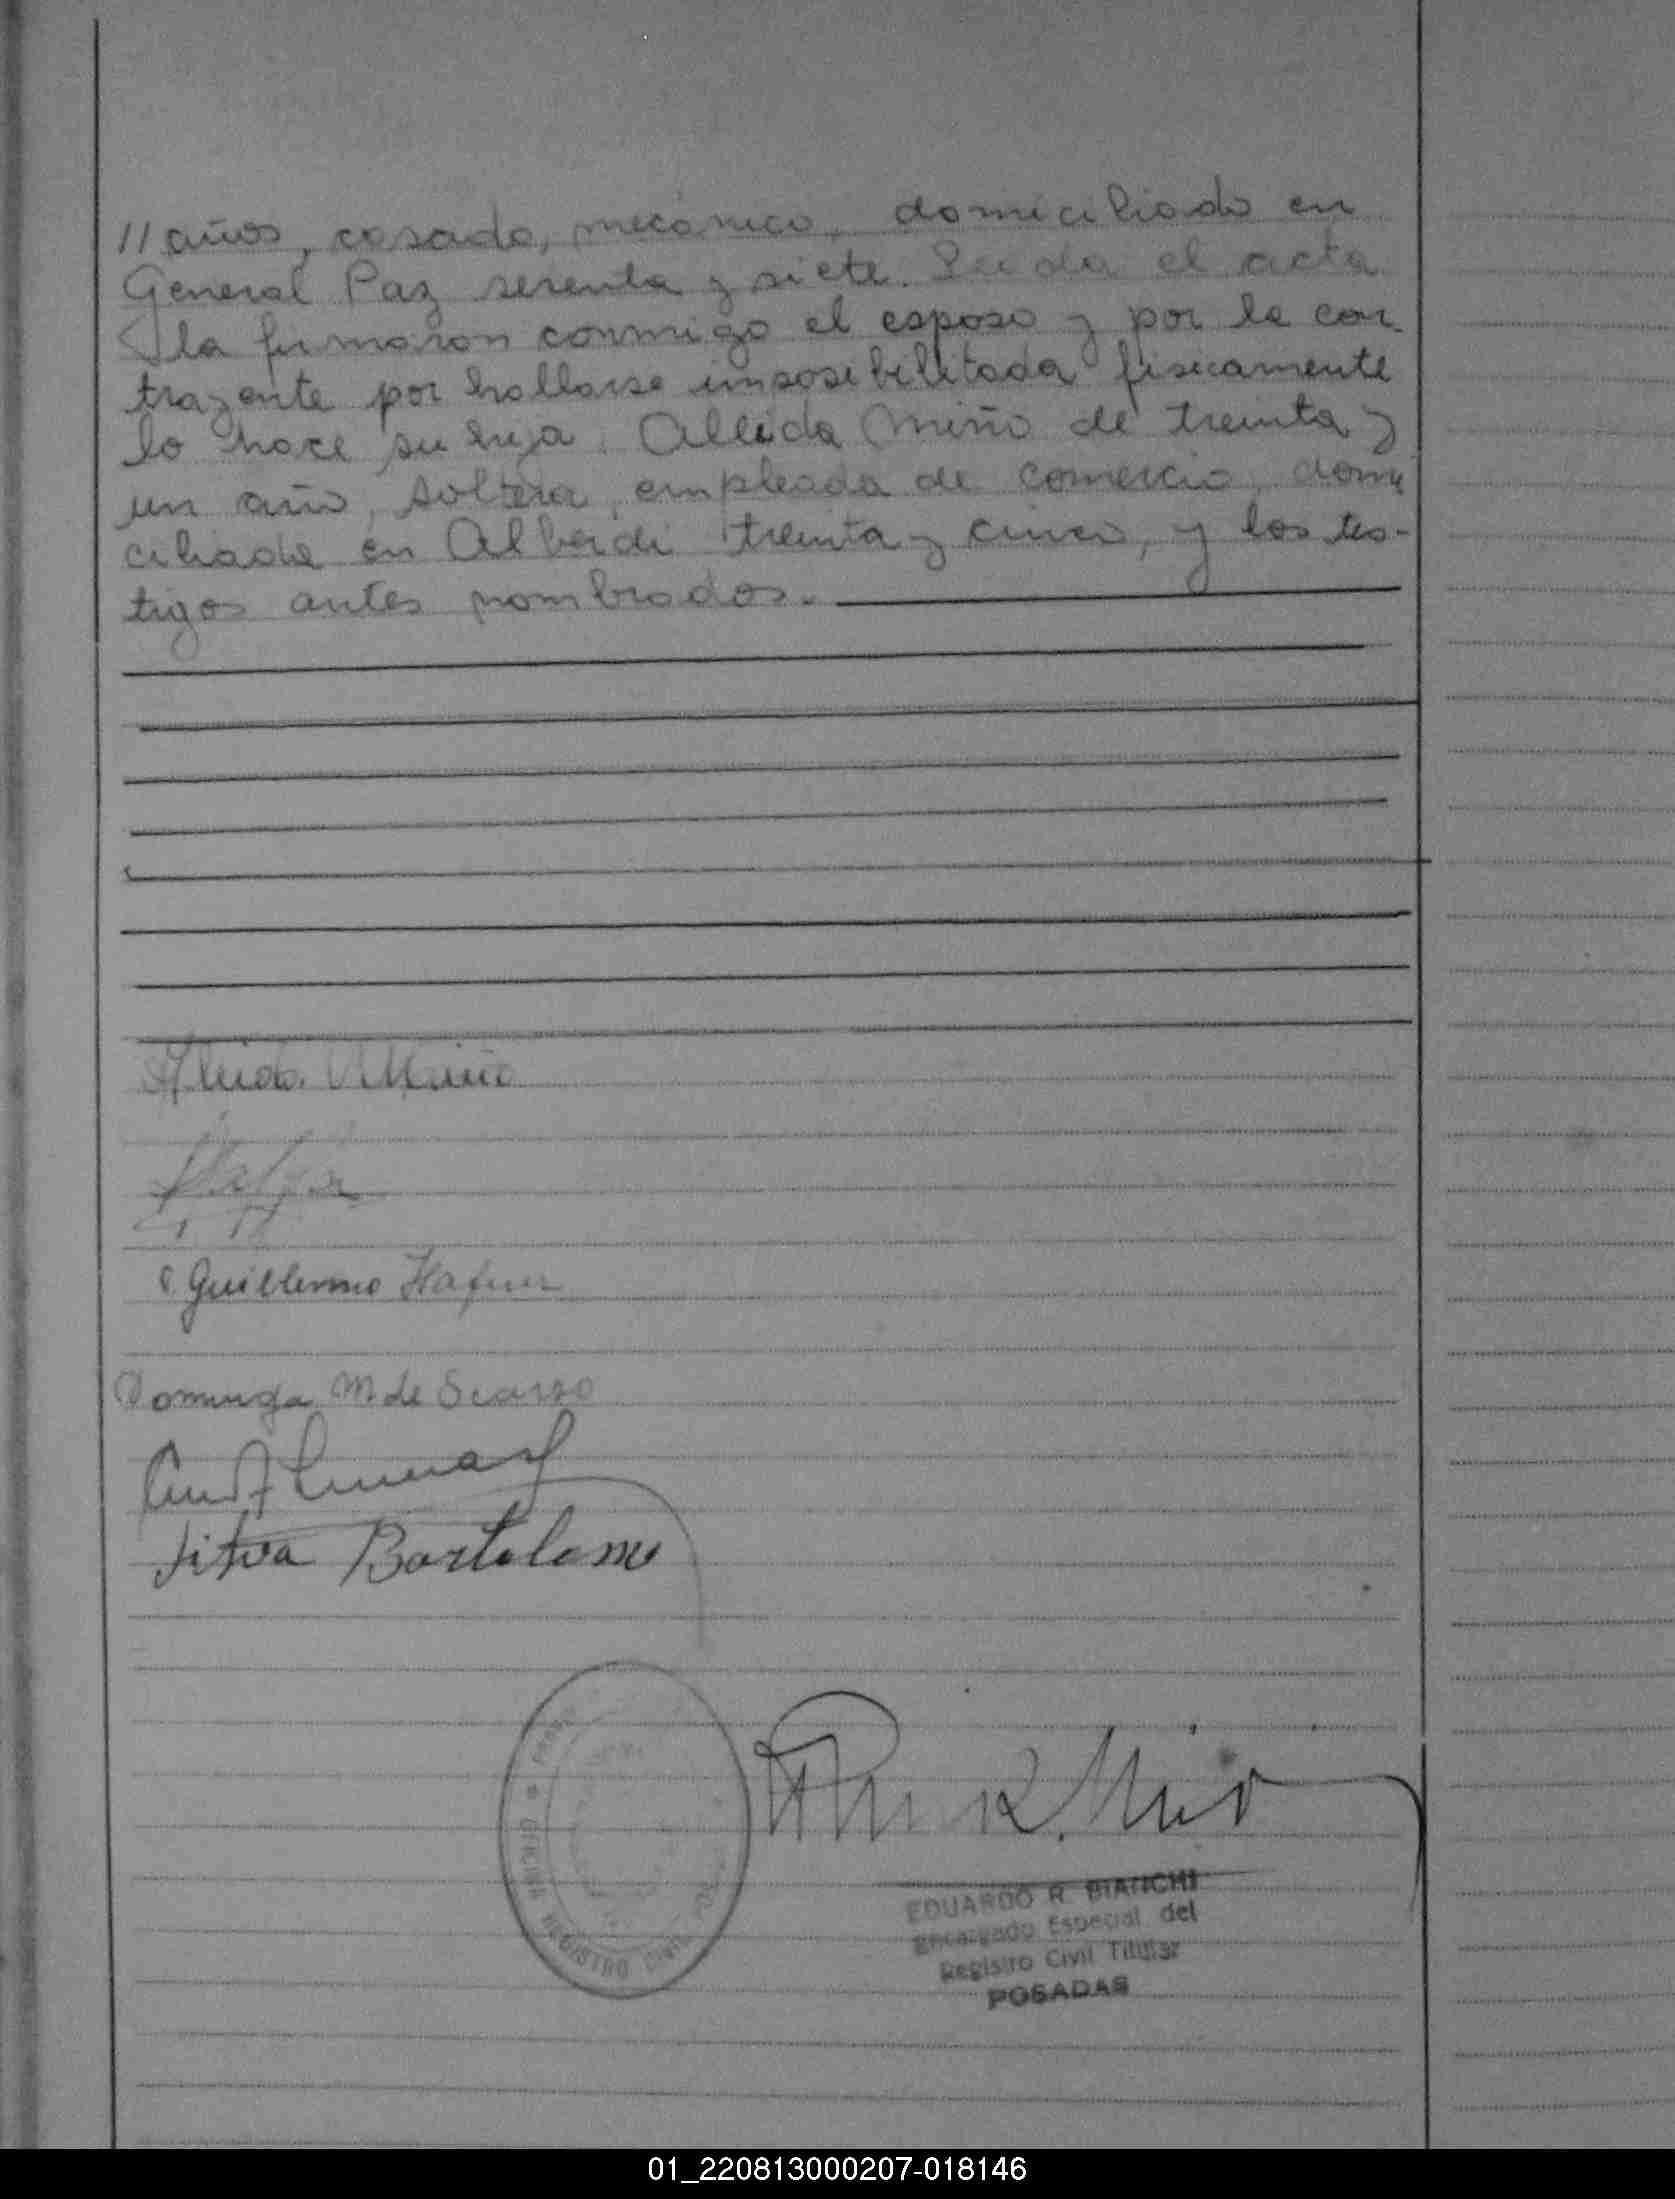 //años, casado, mecánico, domiciliado en
General Paz sesenta y siete. Leida el acta
la firmaron conmigo el esposo y por la con-
trayente por hallarse imposibilitada fisicamente
lo hace su hija Aleida Miño de treinta y
un año, soltera, empleada de comercio, domi
ciliada en Alberdi treinta y cinco, y los tes-
tigos antes nombrados.
Aleida Miño
Guillermo Hafner
Dominga M. de Scarzo
Bartolome
OFICINA REGISTRO CIVIL
EDUARDO R BIANCHI
Encargado Especial del
Registro Civil Titular
POSADAS
01_220813000207-018146